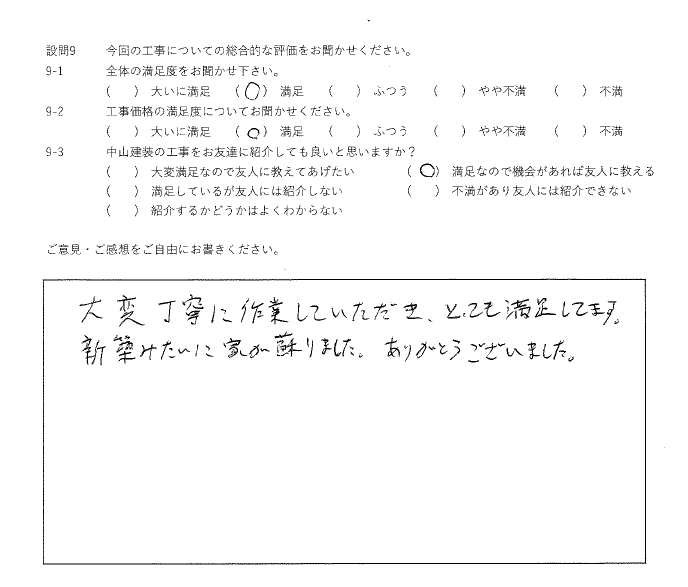 設問9 今回の工事についての総合的な評価をお聞かせください。
9-1 全体の満足度をお聞かせ下さい。
( ) 大いに満足 (○) 満足 ( ) ふつう ( ) やや不満 ( ) 不満
9-2 工事価格の満足度についてお聞かせください。
( ) 大いに満足 (○) 満足 ( ) ふつう ( ) やや不満 ( ) 不満
9-3 中山建装の工事をお友達に紹介しても良いと思いますか?
( ) 大変満足なので友人に教えてあげたい (○) 満足なので機会があれば友人に教える
( ) 満足しているが友人には紹介しない ( ) 不満があり友人には紹介できない
( ) 紹介するかどうかはよくわからない
ご意見・ご感想をご自由にお書きください。
大変丁寧に作業していただき、とても満足してます。
新築みたいに家が蘇りました。ありがとうございました。